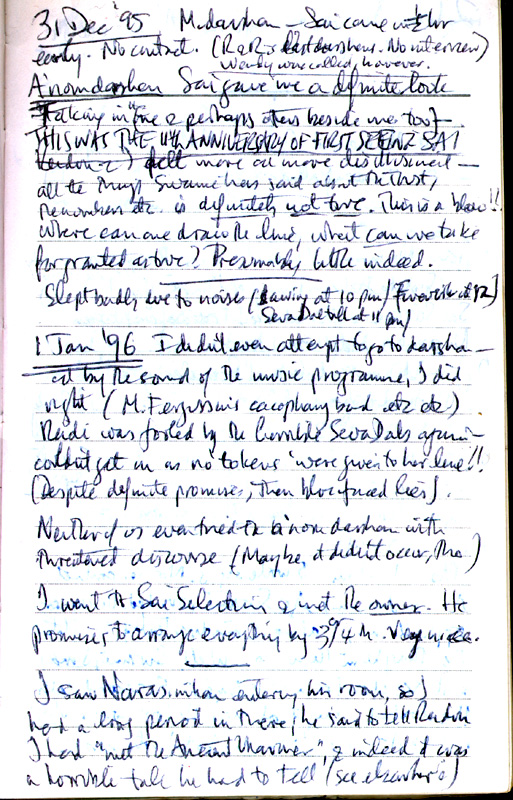 31 Dec '95 M. darshan – Sai came
early. No contact. (R & R's last darshans. No interview)
Wendy was called, however.
A'noon darshan Sai gave me a definite look
Taking in me & perhaps others beside me too –
THIS WAS THE 11th ANNIVERSARY OF FIRST SEEING SAI
Reidun & I felt more and more disillusioned –
all the things Swami has said about the Trust,
the numbers etc. is definitely not true. This is a blow!!
Where can one draw the line, what can we take
for granted as true? Presumably little indeed.
Slept badly due to noises (at 10 pm / at 12)
Seva Dal at 11 pm)
1 Jan '96 I didn't even attempt to go to darshan –
and by the sound of the music programme, I did
right (M. Ferguson's cacophany band etc etc)
Reidi was foiled by the horrible Seva Dals again –
couldn't get in as no tokens were given to her line!!
(Despite definite promises, then blowfaced lies).
Neither of us even tried the a'noon darshan with
threatened discourse (Maybe it didn't occur, tho)
I went to Sai Selection & met the owner. He
promises to arrange everything by 3rd/4th. Very nice.
I saw Narasimhan entering his room, so I
had a long period in there, he said to tell Reidun
I had "met the Ancient Mariner", & indeed it was
a horrible tale he had to tell (see elsewhere)